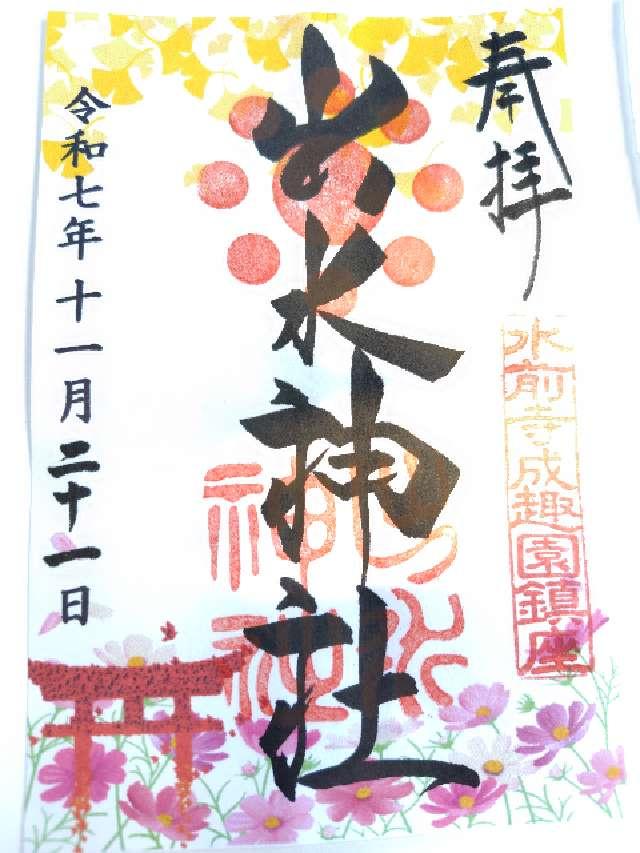 奉拝
水前寺成趣園鎮座
出水神社
出水神社
令和七年十一月二十一日